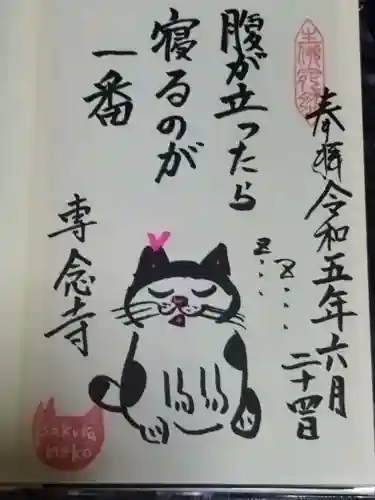 奉拝
令和五年六月
二十四日
腹が立ったら
寝るのが
一番
z z
専念寺
sakura
neko